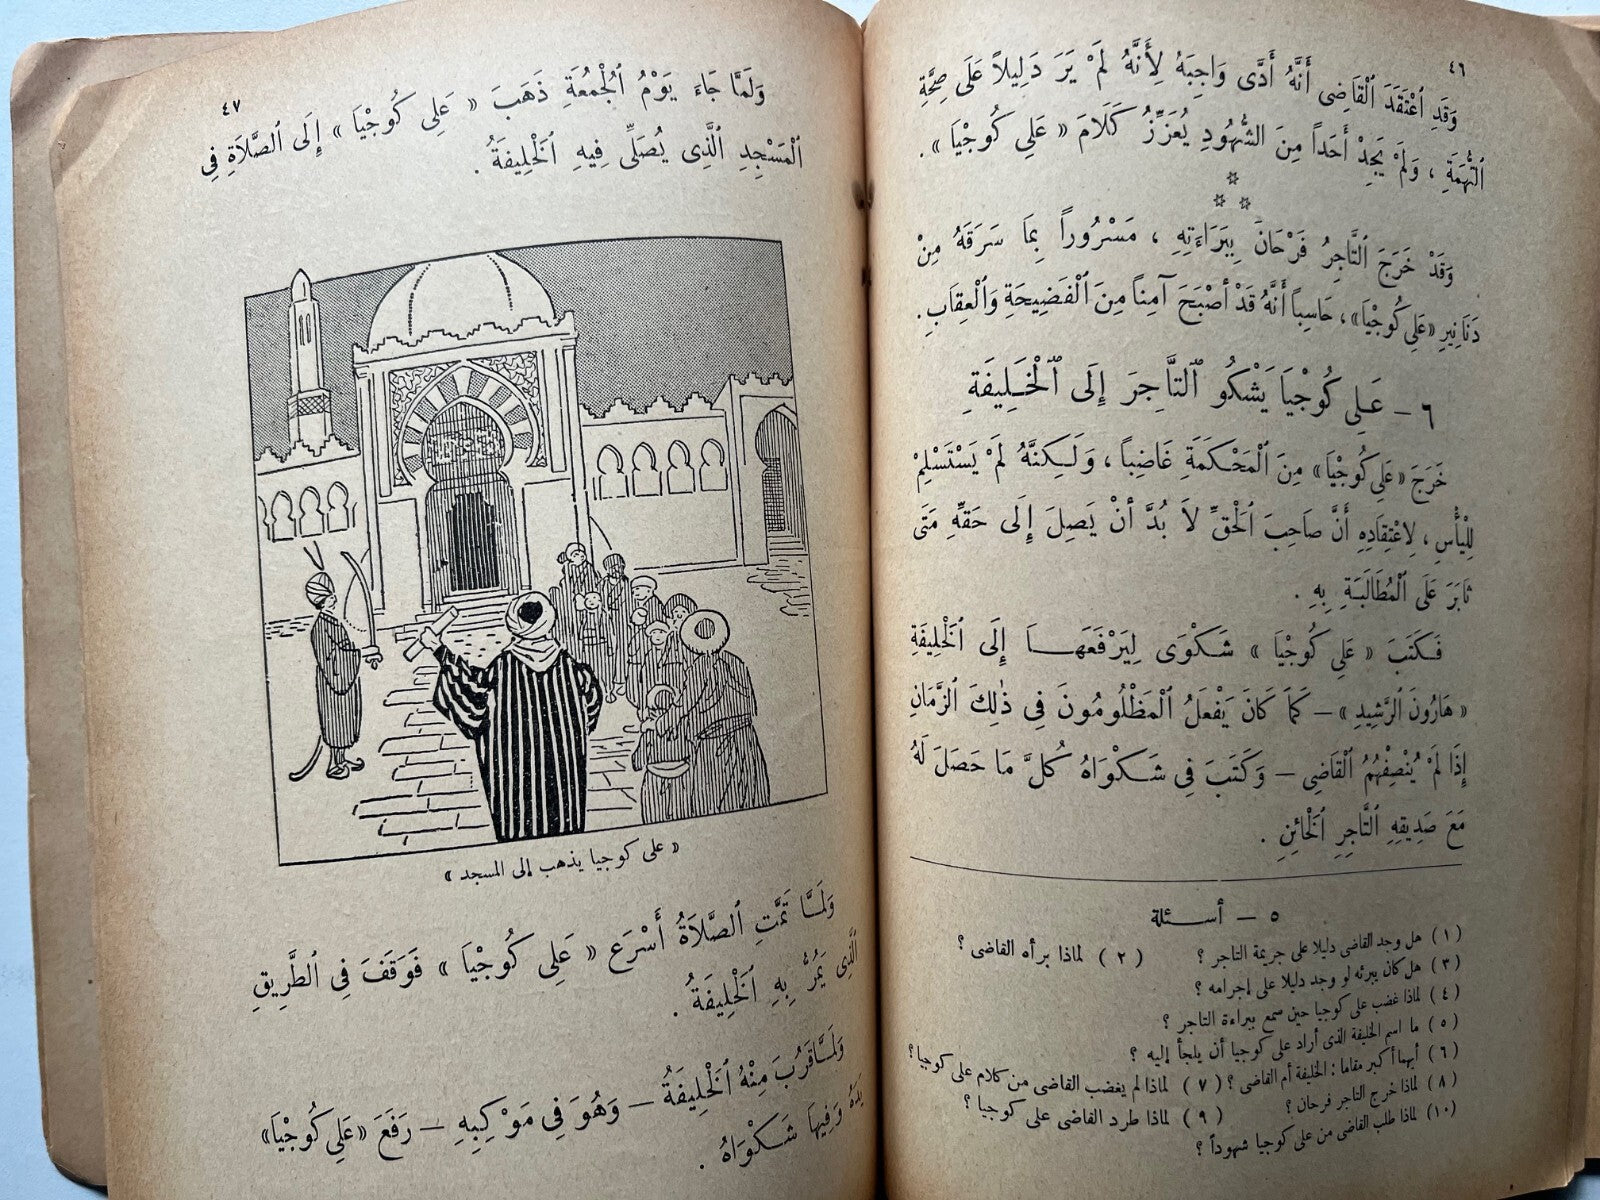 ٤٦
وَقَدِ ٱعْتَقَدَ ٱلْقَاضِى أَنَّهُ أَدَّى وَاجِبَهُ لِأَنَّهُ لَمْ يَرَ دَلِيلاً عَلَى صِحَّةِ
ٱلتُّهَمَةِ ، وَلَمْ يَجِدْ أَحَداً مِنَ الشُّهُودِ يُعَزِّزُ كَلَامَ « عَلِى كُوجْيَا » .
وَقَدْ خَرَجَ ٱلتَّاجِرُ فَرْحَانَ بِبَرَاءَتِهِ ، مَسْرُوراً بِمَا سَرَقَهُ مِنْ
دَنَانِيرِ «عَلِى كُوجْيَا» ، حَاسِباً أَنَّهُ قَدْ أَصْبَحَ آمِناً مِنَ ٱلْفَضِيحَةِ وَٱلْعِقَابِ .
٦ – عَلِى كُوجْيَا يَشْكُو ٱلتَّاجِرَ إِلَى ٱلْخَلِيفَةِ
خَرَجَ «عَلِى كُوجْيَا» مِنَ ٱلْمَحْكَمَةِ غَاضِباً ، وَلَكِنَّهُ لَمْ يَسْتَسْلِمْ
لِلْيَأْسِ ، لِاعْتِقَادِهِ أَنَّ صَاحِبَ ٱلْحَقِّ لاَ بُدَّ أَنْ يَصِلَ إِلَى حَقِّهِ مَتَى
ثَابَرَ عَلَى ٱلْمُطَالَبَةِ بِهِ .
فَكَتَبَ « عَلِى كُوجْيَا » شَكْوَى لِيَرْفَعَهَا إِلَى ٱلْخَلِيفَةِ
« هَارُونَ ٱلرَّشِيدِ » – كَمَا كَانَ يَفْعَلُ ٱلْمَظْلُومُونَ فِى ذٰلِكَ ٱلزَّمَانِ
إِذَا لَمْ يُنْصِفْهُمُ ٱلْقَاضِى – وَكَتَبَ فِى شَكْوَاهُ كُلَّ مَا حَصَلَ لَهُ
مَعَ صَدِيقِهِ ٱلتَّاجِرِ ٱلْخَائِنِ .
٥ – أسئلة
(١) هل وجد القاضى دليلا على جريمة التاجر ؟ (٢) لماذا برأه القاضى ؟
(٣) هل كان يبرئه لو وجد دليلا على إجرامه ؟
(٤) لماذا غضب على كوجيا حين سمع ببراءة التاجر ؟
(٥) ما اسم الخليفة الذى أراد على كوجيا أن يلجأ إليه ؟
(٦) أيهما أكبر مقاما : الخليفة أم القاضى ؟ (٧) لماذا لم يغضب القاضى من كلام على كوجيا ؟
(٨) لماذا خرج التاجر فرحان ؟ (٩) لماذا طرد القاضى على كوجيا ؟
(١٠) لماذا طلب القاضى من على كوجيا شهوداً ؟
٤٧
وَلَمَّا جَاءَ يَوْمُ ٱلْجُمْعَةِ ذَهَبَ « عَلِى كُوجْيَا » إِلَى ٱلصَّلَاةِ فِى
ٱلْمَسْجِدِ ٱلَّذِى يُصَلِّى فِيهِ ٱلْخَلِيفَةُ .
« على كوجيا يذهب إلى المسجد »
وَلَمَّا تَمَّتِ ٱلصَّلَاةُ أَسْرَعَ « عَلِى كُوجْيَا » فَوَقَفَ فِى ٱلطَّرِيقِ
ٱلَّذِى يَمُرُّ بِهِ ٱلْخَلِيفَةُ .
وَلَمَّا قَرُبَ مِنْهُ ٱلْخَلِيفَةُ – وَهُوَ فِى مَوْكِبِهِ – رَفَعَ «عَلِى كُوجْيَا»
يَدَهُ وَفِيهَا شَكْوَاهُ .